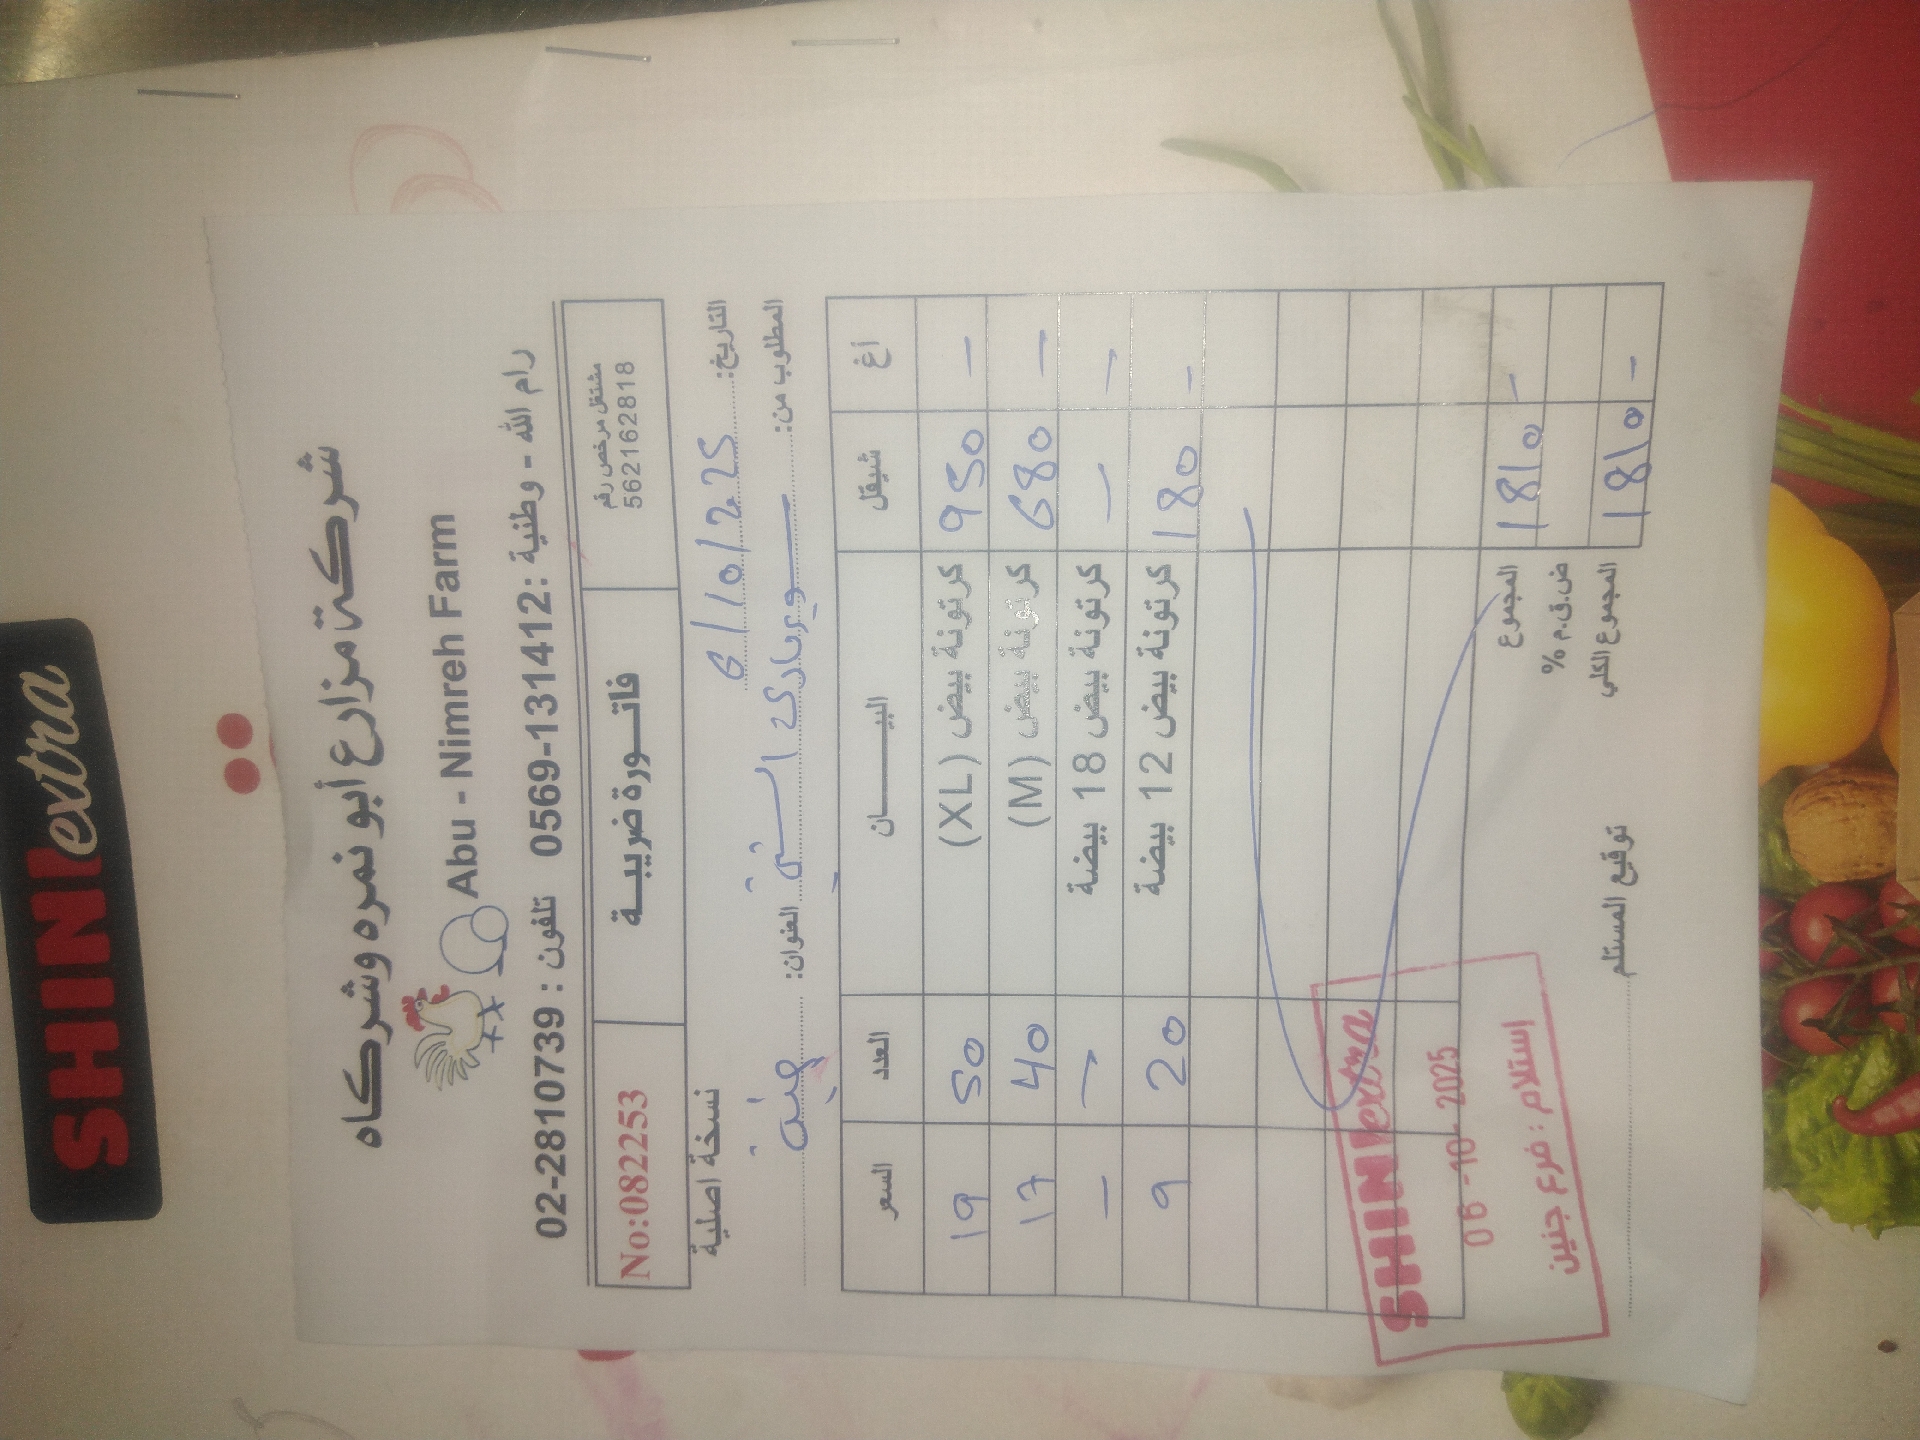 SHINI extra
شركة مزارع أبو نمره وشركاه
Abu - Nimreh Farm
رام الله - وطنية : 0569-131412 تلفون : 02-2810739
مشتغل مرخص رقم
562162818
فاتورة ضريبية
No:082253
التاريخ: 6/10/2025
نسخة اصلية
المطلوب من: سوبرماركت الشني العنوان: جنين
أغ شيقل البيان العدد السعر
- 950 كرتونة بيض (XL) 50 19
- 680 كرتونة بيض (M) 40 17
- - كرتونة بيض 18 بيضة - -
- 180 كرتونة بيض 12 بيضة 20 9
المجموع 1810 -
ض.ق.م %
المجموع الكلي 1810 -
SHINI extra
06-10-2025
استلام : فرع جنين
توقيع المستلم